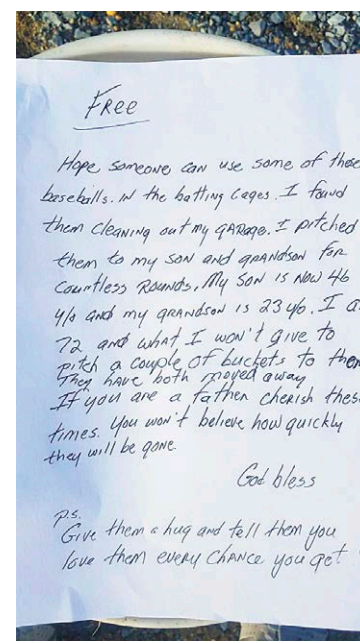 FREE
Hope someone can use some of these
baseballs. in the batting cages. I found
them cleaning out my garage. I pitched
them to my son and grandson for
countless rounds. My son is now 46
y/o and my grandson is 23 y/o. I a
72 and what I won't give to
pitch a couple of buckets to them
They have both moved away
If you are a father cherish thes
times. You won't believe how quickly
they will be gone
God bless
p.s.
Give them a hug and tell them you
love them every chance you get